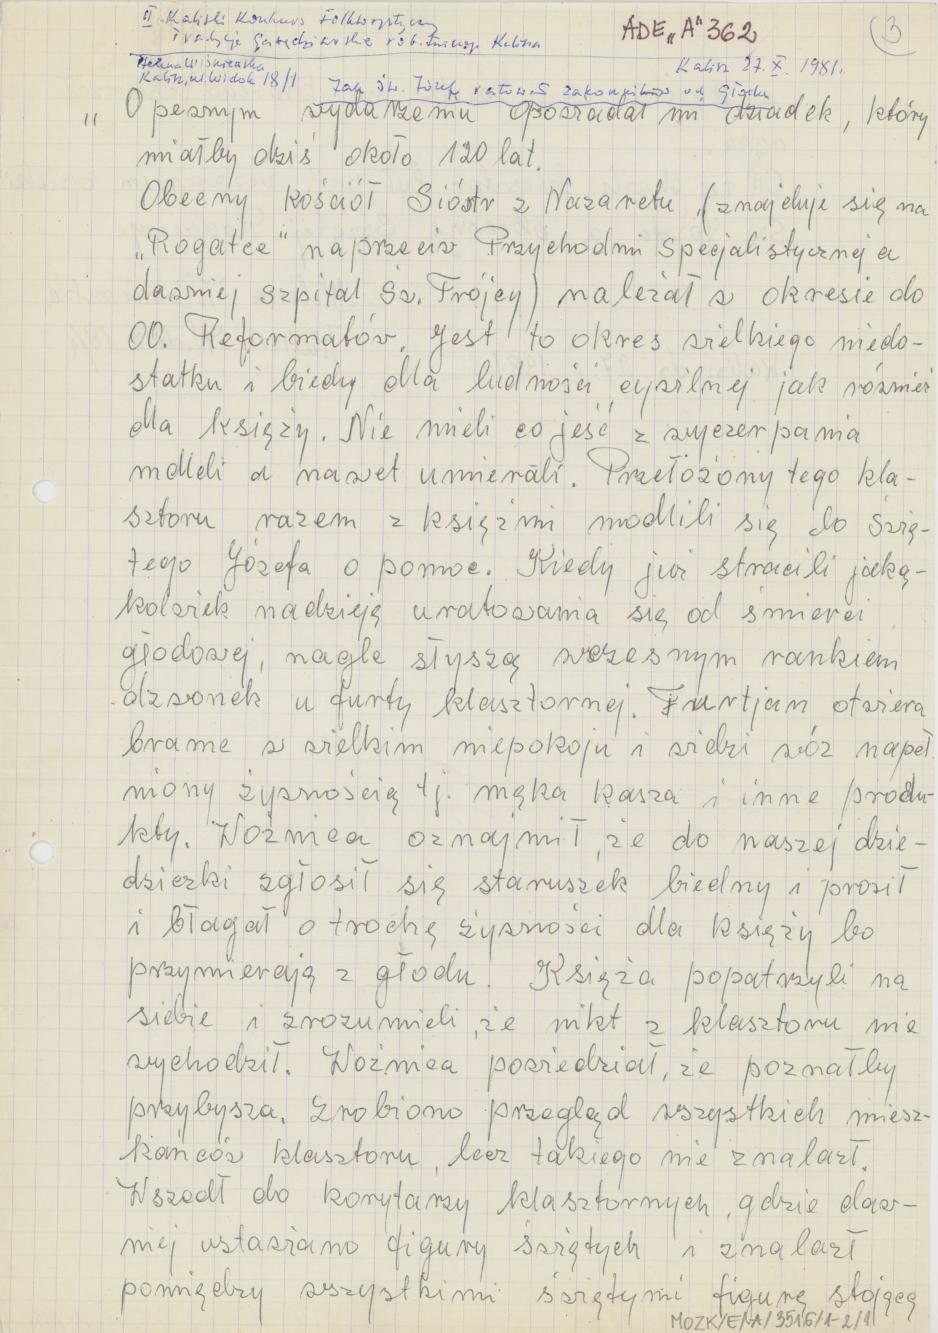 II Kaliski Konkurs Folklorystyczny
Tradycje gawędziarskie robotniczego Kalisza
ADE „A" 362
3
Helena Wiśniewska
Kalisz, ul. Widok 18/1
Kalisz 27.X.1981.
Jak św. Józef ratował zakonników od głodu
" O pewnym wydarzeniu opowiadał mi dziadek, który
miałby dziś około 120 lat.
Obecny kościół Sióstr z Nazaretu, (znajduje się na
„Rogatce" naprzeciw Przychodni Specjalistycznej a
dawniej Szpital Św. Trójcy) należał w okresie do
OO. Reformatów. Jest to okres wielkiego niedo-
statku i biedy dla ludności cywilnej jak również
dla księży. Nie mieli co jeść z wyczerpania
mdleli a nawet umierali. Przełożony tego kla-
sztoru razem z księżmi modlili się do Świę-
tego Józefa o pomoc. Kiedy już stracili jaką-
kolwiek nadzieję uratowania się od śmierci
głodowej, nagle słyszą wczesnym rankiem
dzwonek u furty klasztornej. Furtjan otwiera
bramę w wielkim niepokoju i widzi wóz napeł
niony żywnością tj. mąka kasza i inne produ-
kty. Woźnica oznajmił, że do naszej dzie-
dziczki zgłosił się staruszek biedny i prosił
i błagał o trochę żywności dla księży bo
przymierają z głodu. Księża popatrzyli na
siebie i zrozumieli, że nikt z klasztoru nie
wychodził. Woźnica powiedział, że poznałby
przybysza. Zrobiono przegląd wszystkich miesz-
kańców klasztoru, lecz takiego nie znalazł.
Wszedł do korytarzy klasztornych, gdzie daw-
niej ustawiano figury świętych i znalazł
pomiędzy wszystkimi świętymi figurę stojącą
MOZK/E/A/3516/1-2/1